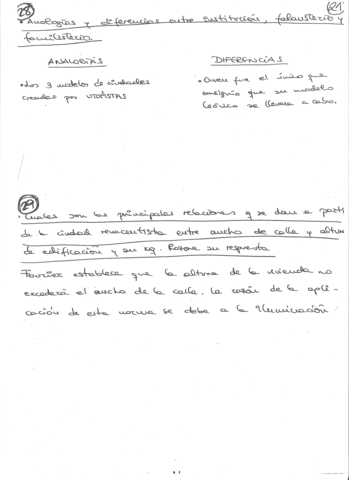 28 21
• Analogías y diferencias entre Institución, falansterio y
familisterio.
ANALOGÍAS DIFERENCIAS
• Los 3 modelos de ciudades
creadas por UTOPISTAS
• Owen fue el único que
consiguió que su modelo
teórico se llevara a cabo.
29
• Cuales son las principales relaciones q se dan a parti
de la ciudad renacentista entre ancho de calle y altura
de edificación y su xq. Razone su respuesta
Fourier establece que la altura de la vivienda no
excederá el ancho de la calle. La razón de la apli-
cación de esta norma se debe a la iluminación.